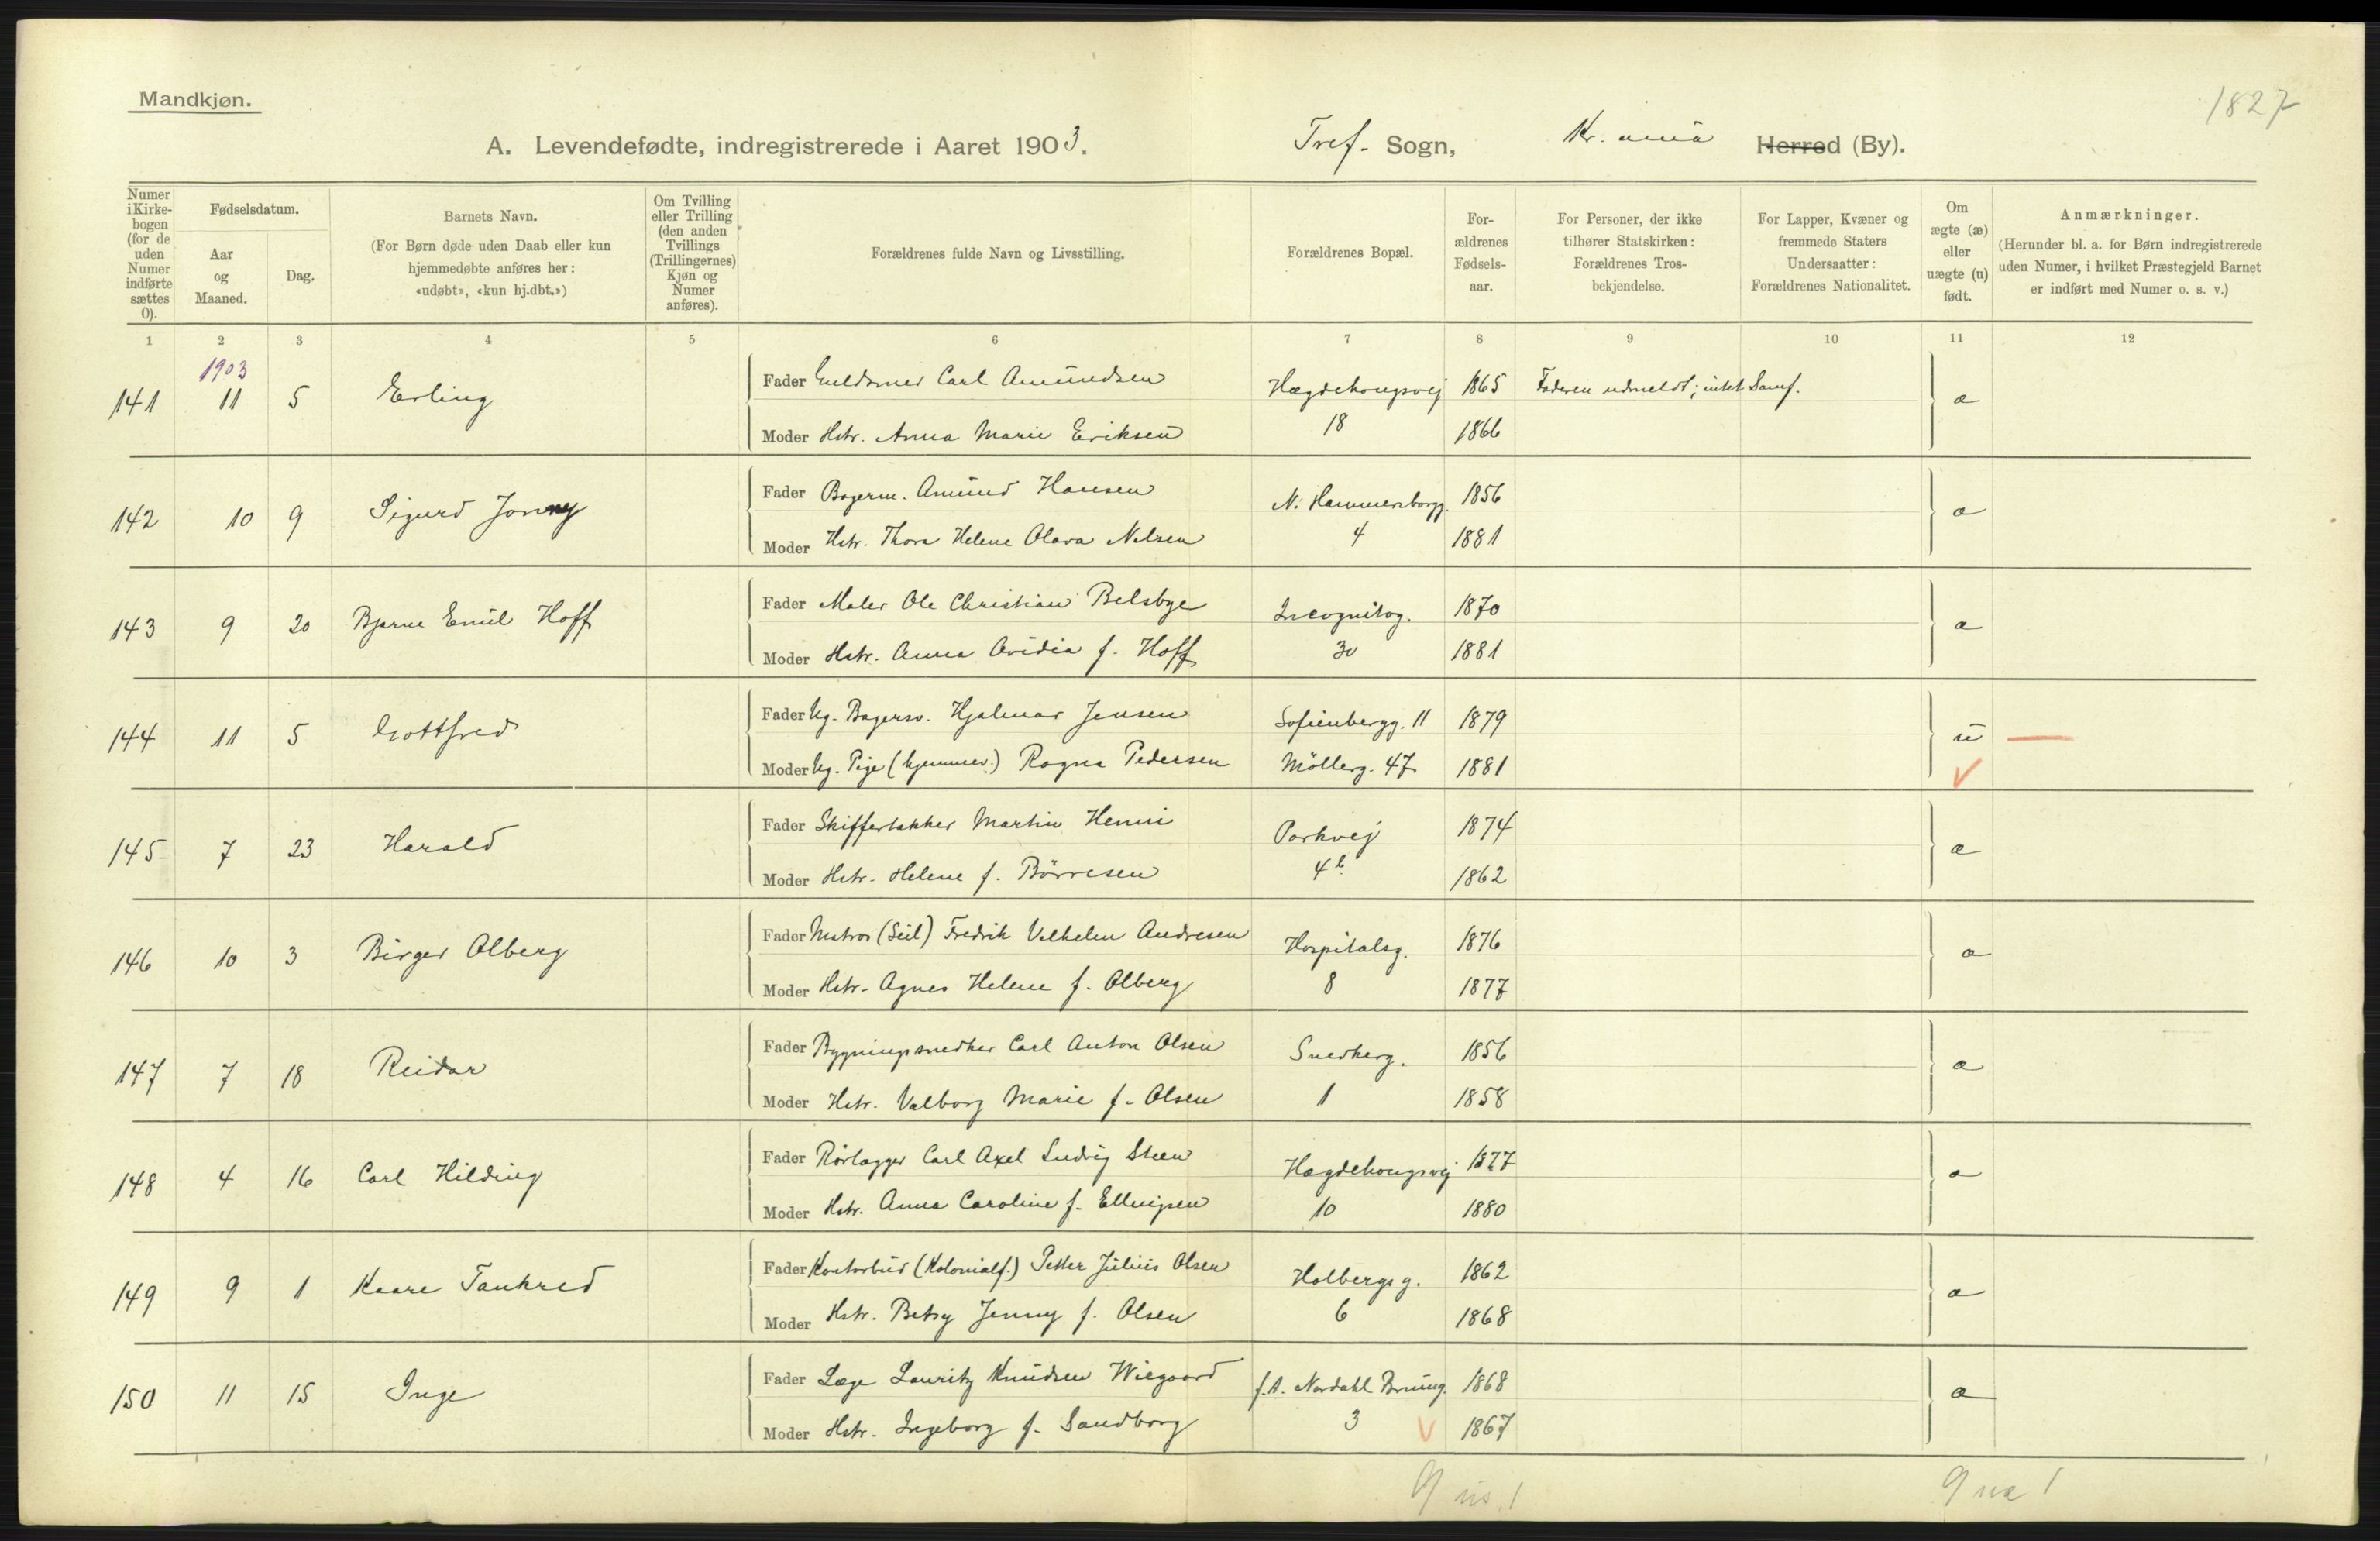 Mandkjøn.
1827
A. Levendefødte, indregistrerede i Aaret 1903. Tref. Sogn, Kr.ania Herred (By).
Numer i Kirke-bogen (for de uden Numer indførte sættes 0).
Fødselsdatum.
Aar og Maaned.
Dag.
Barnets Navn.
(For Børn døde uden Daab eller kun hjemmedøbte anføres her: «udøbt», «kun hj.dbt.»)
Om Tvilling eller Trilling (den anden Tvillings (Trillingernes) Kjøn og Numer anføres).
Forældrenes fulde Navn og Livsstilling.
Forældrenes Bopæl.
For-ældrenes Fødsels-aar.
For Personer, der ikke tilhører Statskirken: Forældrenes Tros-bekjendelse.
For Lapper, Kvæner og fremmede Staters Undersaatter: Forældrenes Nationalitet.
Om ægte (æ) eller uægte (u) født.
Anmærkninger.
(Herunder bl. a. for Børn indregistrerede uden Numer, i hvilket Præstegjeld Barnet er indført med Numer o. s. v.)
1 2 3 4 5 6 7 8 9 10 11 12
1903
141 11 5 Erling Fader Guldsmed Carl Amundsen Hægdehougsvej 1865 Faderen udmeldt; intet Samf. æ
Moder Hstr. Anna Marie Eriksen 18 1866
142 10 9 Sigurd Jonny Fader Bagerm. Amund Hansen N. Hammersborgg. 1856 æ
Moder Hstr. Thora Helene Olava Nilsen 4 1881
143 9 20 Bjarne Emil Hoff Fader Maler Ole Christian Belsbye Incognitog. 1870 æ
Moder Hstr. Anna Ovidia f. Hoff 30 1881
144 11 5 Gottfred Fader Ug. Bagersv. Hjalmar Jensen Sofienbergg. 11 1879 u
Moder Ug. Pige (hjemmev.) Ragna Pedersen Möllerg. 47 1881
145 7 23 Harald Fader Skiffertækker Martin Henni Parkvej 1874 æ
Moder Hstr. Helene f. Börresen 4b. 1862
146 10 3 Birger Olberg Fader Matros (Seil) Fredrik Vilhelm Andresen Hospitalsg. 1876 æ
Moder Hstr. Agnes Helene f. Olberg 8 1877
147 7 18 Reidar Fader Bygningssnedker Carl Anton Olsen Snedkerg. 1856 æ
Moder Hstr. Valborg Marie f. Olsen 1 1858
148 4 16 Carl Hilding Fader Rörlægger Carl Axel Ludvig Steen Hægdehougsvej 1877 æ
Moder Hstr. Anna Caroline f. Ellingsen 10 1880
149 9 1 Kaare Tankred Fader Kontorbud (Kolonialf.) Petter Julius Olsen Holbergsg. 1862 æ
Moder Hstr. Betsy Jenny f. Olsen 6 1868
150 11 15 Inge Fader Læge Lauritz Knudsen Wiegaard f.A. Nordahl Bruung. 1868 æ
Moder Hstr. Ingeborg f. Sandborg 3 1867